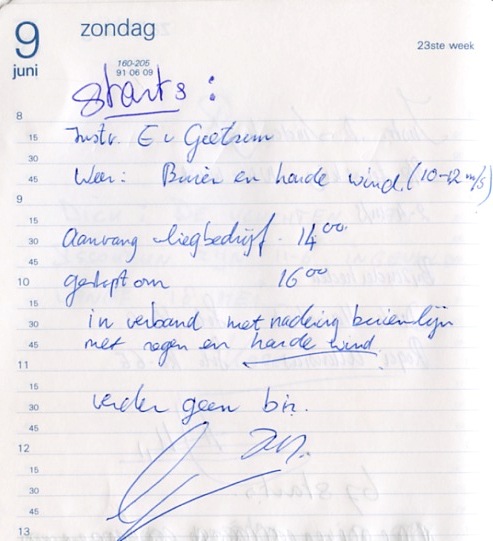 9 zondag
juni
23ste week
160-205
91 06 09
starts:
8
15 Instr. E v Geetsum
30
45 Weer: Buien en harde wind. (10-12 m/s)
9
15
30 Aanvang vliegbedrijf 14 00.
45
10 gestopt om 16 00
15
30 in verband met nadering buienlijn
45 met regen en harde wind.
11
15
30 verder geen
45
12
15
30
45
13